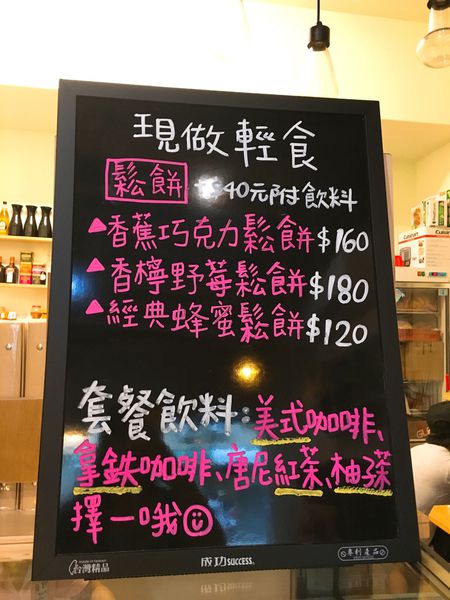 現做輕食
鬆餅 +40元附飲料
▲香蕉巧克力鬆餅$160
▲香檸野莓鬆餅$180
▲經典蜂蜜鬆餅$120
套餐飲料:美式咖啡、
拿鉄咖啡、唐尼紅茶、柚子茶
擇一哦☺
台灣精品
成功 SUCCESS.
專利產品
Cuisinart